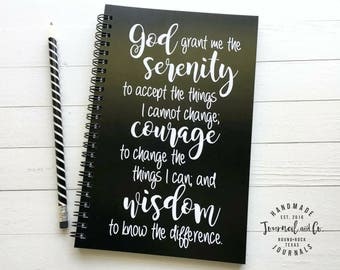 God grant me the
serenity
to accept the things
I cannot change;
courage
to change the
things I can; and
wisdom
to know the difference.
HANDMADE
EST. 2014
Journal and Co.
ROUND ROCK
TEXAS
JOURNALS